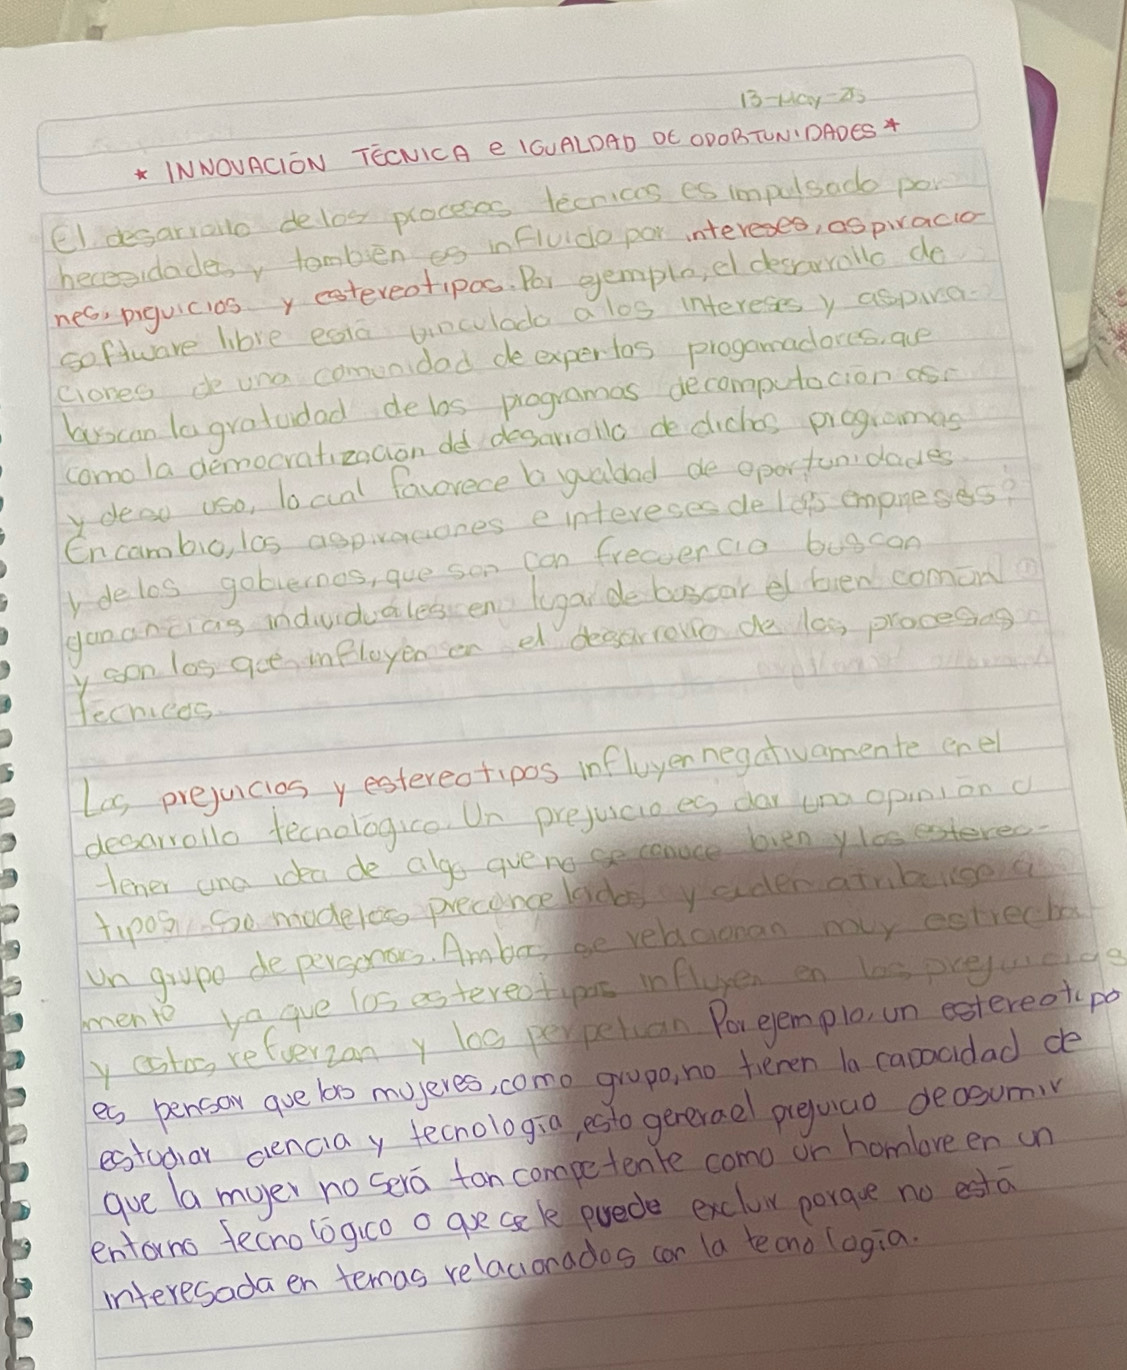 13-May-25
* INNOVACIÓN TÉCNICA e IGUALDAD DE OPORTUNIDADES *
El desarrollo de los procesos técnicos es impulsado por
necesidades y también es influido por intereses, aspiracio
nes, prejuicios y estereotipos. Por ejemplo, el desarrollo de
software libre está vinculado a los intereses y aspira-
ciones de una comunidad de expertos progamadores, que
buscan la gratuidad de los programas de computación así
como la democratización del desarrollo de dichos programas
y de su uso, lo cual favorece la igualdad de oportunidades
En cambio, los aspiraciones e intereses de las empresas
y de los gobiernos, que son con frecuencia buscan
ganancias individuales en lugar de buscar el bien común
y son los que influyen en el desarrollo de los procesos
técnicos
Los prejuicios y estereotipos influyen negativamente en el
desarrollo tecnológico. Un prejuicio es dar una opinión o
tener una idea de algo que no se conoce bien y los estereo-
tipos so modelos preconcebidos y suelen atribuirse a
un grupo de personas. Ambos se relacionan muy estrecha
mente ya que los estereotipos influyen en los prejuicios
y estos refuerzan y los perpetuan Por ejemplo, un estereotipo
es pensar que las mujeres, como grupo, no tienen la capacidad de
estudiar ciencia y tecnología, esto genera el prejuicio de asumir
que la mujer no será tan competente como un hombre en un
entorno tecnológico o que se le puede excluir porque no está
interesada en temas relacionados con la tecnología.